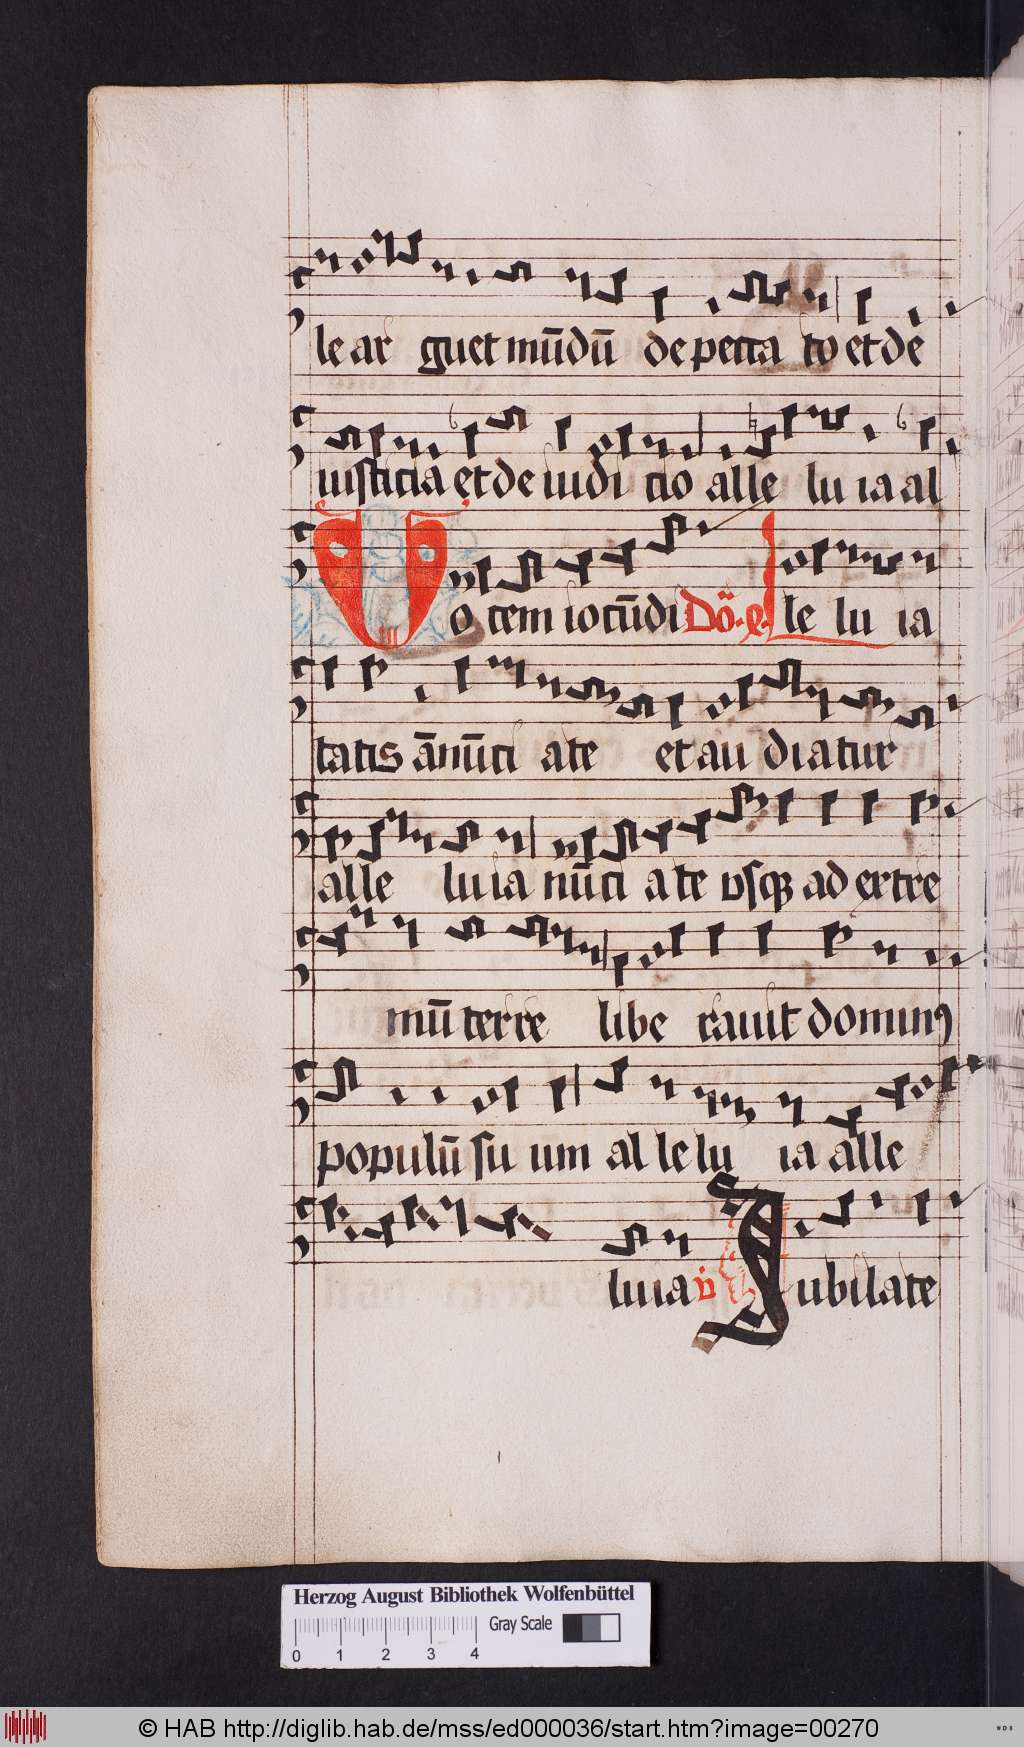 le ar guet mūdū de pecca to et de
iusticia et de iudi cio alle lu ia al
Vo cem iocūdi Dō. e. le lu ia
tatis ānūci ate et au diatur
alle luia nūci a te vsqꝫ ad extre
mū terre libe rauit dominꝰ
populū su um al le lu ia alle
luia v̇ Jubilate
Herzog August Bibliothek Wolfenbüttel
Gray Scale
0 1 2 3 4
© HAB http://diglib.hab.de/mss/ed000036/start.htm?image=00270